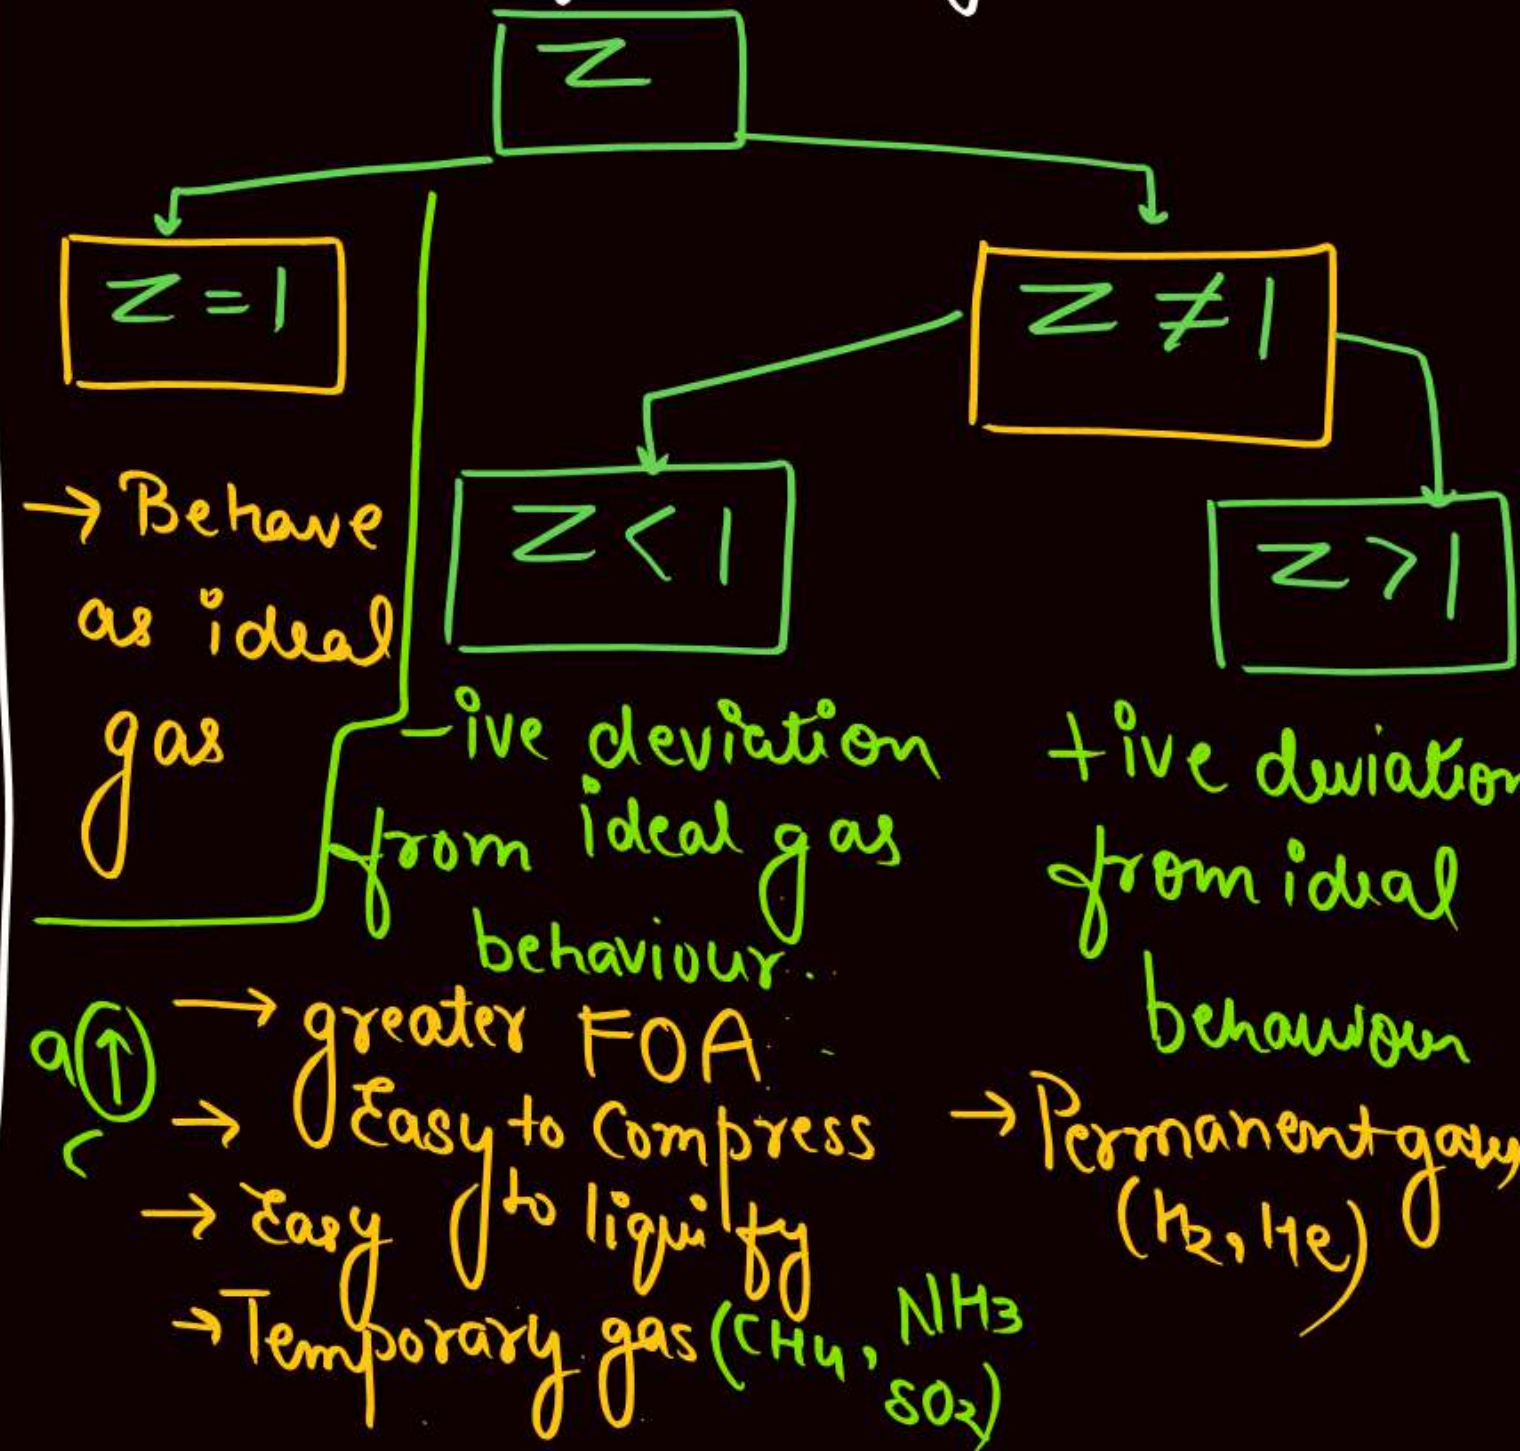 Z
Z = 1
Z ≠ 1
→ Behave
as ideal
gas
Z < 1
-ive deviation
from ideal gas
behaviour..
a↑
→ greater FOA
→ Easy to compress
→ Easy to liquify
→ Temporary gas (CH4, NH3
SO2)
Z > 1
+ive deviation
from ideal
behaviour
→ Permanent gases
(H2, He)